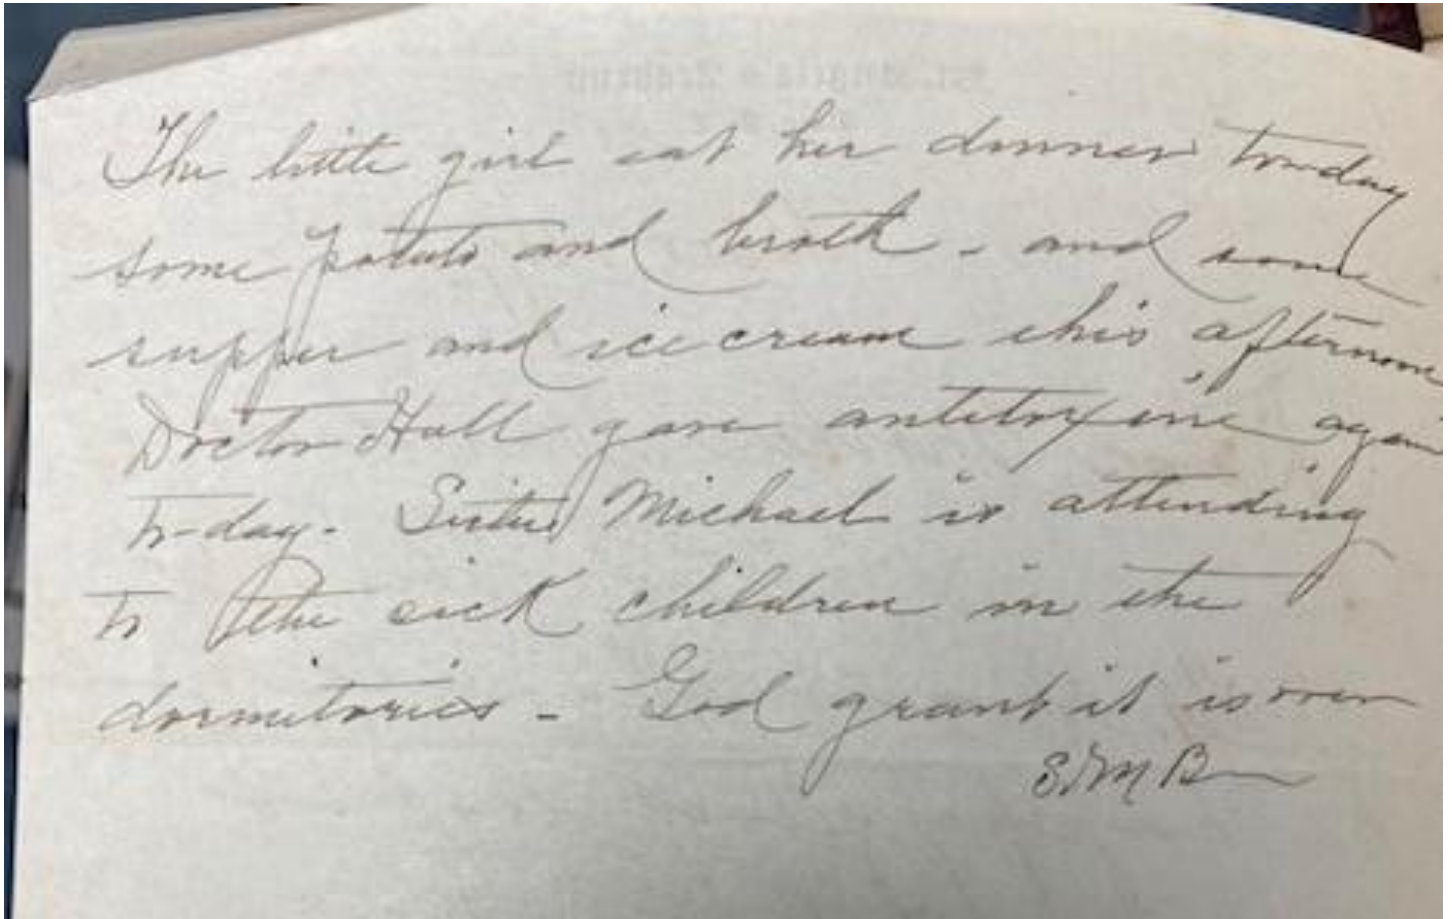 The little girl eat her dinner to-day
some potato and broth - and some
supper and ice cream this afternoon
Doctor Hall gave antitoxine again
to-day. Sister Michael is attending
to the sick children in the
dormitories - God grant it is over